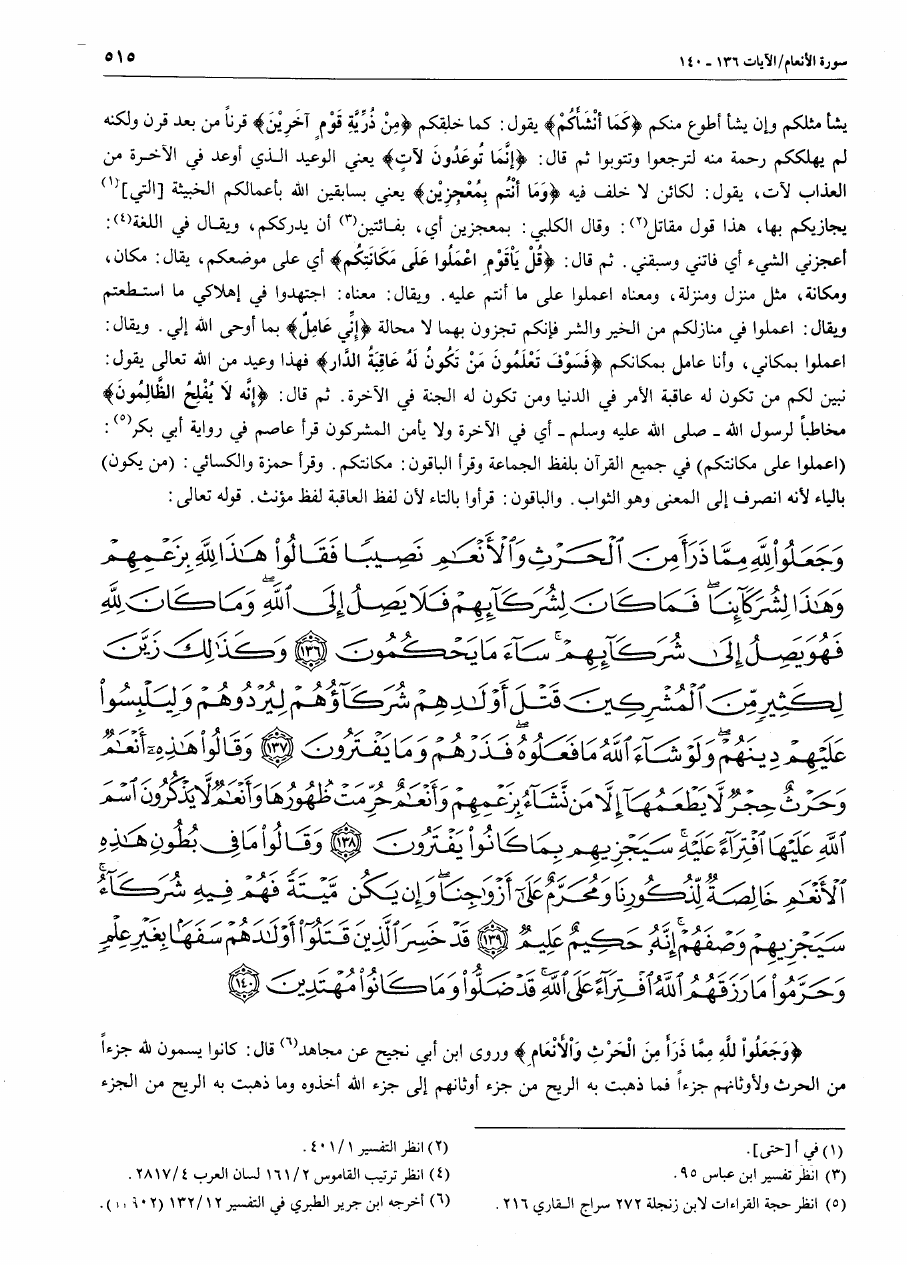 سورة الأنعام/الآيات ١٣٦ ـ ١٤٠ ٥١٥
يشأ مثلكم وإن يشأ أطوع منكم ﴿كَمَا أَنْشَأَكُمْ﴾ يقول: كما خلقكم ﴿مِنْ ذُرِّيَّةِ قَوْمٍ آخَرِيْنَ﴾ قرناً من بعد قرن ولكنه
لم يهلككم رحمة منه لترجعوا وتتوبوا ثم قال: ﴿إِنَّمَا تُوعَدُونَ لآتٍ﴾ يعني الوعيد الـذي أوعد في الآخـرة من
العذاب لآت، يقول: لكائن لا خلف فيه ﴿وَمَا أَنْتُم بِمُعْجِزِيْن﴾ يعني بسابقين الله بأعمالكم الخبيثة [التي](١)
يجازيكم بها، هذا قول مقاتل(٢): وقال الكلبي: بمعجزين أي، بفـائتين(٣) أن يدرككم، ويقـال في اللغة(٤):
أعجزني الشيء أي فاتني وسبقني. ثم قال: ﴿قُلْ يَاْقَوْمِ اعْمَلُوا عَلَى مَكَانَتِكُم﴾ أي على موضعكم، يقال: مكان،
ومكانة، مثل منزل ومنزلة، ومعناه اعملوا على ما أنتم عليه. ويقال: معناه: اجتهدوا في إهلاكي ما استـطعتم
ويقال: اعملوا في منازلكم من الخير والشر فإنكم تجزون بهما لا محالة ﴿إِنِّي عَامِلٌ﴾ بما أوحى الله إلي. ويقال:
اعملوا بمكاني، وأنا عامل بمكانكم ﴿فَسَوْفَ تَعْلَمُونَ مَنْ تَكُونُ لَهُ عَاقِبَةُ الدَّارِ﴾ فهذا وعيد من الله تعالى يقول:
نبين لكم من تكون له عاقبة الأمر في الدنيا ومن تكون له الجنة في الآخرة. ثم قال: ﴿إِنَّه لاَ يُفْلِحُ الظَّالِمُونَ﴾
مخاطباً لرسول الله ـ صلى الله عليه وسلم ـ أي في الآخرة ولا يأمن المشركون قرأ عاصم في رواية أبي بكر(٥):
(اعملوا على مكانتكم) في جميع القرآن بلفظ الجماعة وقرأ الباقون: مكانتكم. وقرأ حمزة والكسائي: (من يكون)
بالياء لأنه انصرف إلى المعنى وهو الثواب. والباقون: قرأوا بالتاء لأن لفظ العاقبة لفظ مؤنث. قوله تعالى:
وَجَعَلُواْ لِلَّهِ مِمَّا ذَرَأَ مِنَ ٱلْحَرْثِ وَٱلْأَنْعَٰمِ نَصِيبًا فَقَالُواْ هَٰذَا لِلَّهِ بِزَعْمِهِمْ
وَهَٰذَا لِشُرَكَآئِنَا ۖ فَمَا كَانَ لِشُرَكَآئِهِمْ فَلَا يَصِلُ إِلَى ٱللَّهِ ۖ وَمَا كَانَ لِلَّهِ
فَهُوَ يَصِلُ إِلَىٰ شُرَكَآئِهِمْ ۗ سَآءَ مَا يَحْكُمُونَ ١٣٦ وَكَذَٰلِكَ زَيَّنَ
لِكَثِيرٍ مِّنَ ٱلْمُشْرِكِينَ قَتْلَ أَوْلَٰدِهِمْ شُرَكَآؤُهُمْ لِيُرْدُوهُمْ وَلِيَلْبِسُواْ
عَلَيْهِمْ دِينَهُمْ ۖ وَلَوْ شَآءَ ٱللَّهُ مَا فَعَلُوهُ ۖ فَذَرْهُمْ وَمَا يَفْتَرُونَ ١٣٧ وَقَالُواْ هَٰذِهِۦٓ أَنْعَٰمٌ
وَحَرْثٌ حِجْرٌ لَّا يَطْعَمُهَآ إِلَّا مَن نَّشَآءُ بِزَعْمِهِمْ وَأَنْعَٰمٌ حُرِّمَتْ ظُهُورُهَا وَأَنْعَٰمٌ لَّا يَذْكُرُونَ ٱسْمَ
ٱللَّهِ عَلَيْهَا ٱفْتِرَآءً عَلَيْهِ ۚ سَيَجْزِيهِم بِمَا كَانُواْ يَفْتَرُونَ ١٣٨ وَقَالُواْ مَا فِى بُطُونِ هَٰذِهِ
ٱلْأَنْعَٰمِ خَالِصَةٌ لِّذُكُورِنَا وَمُحَرَّمٌ عَلَىٰٓ أَزْوَٰجِنَا ۖ وَإِن يَكُن مَّيْتَةً فَهُمْ فِيهِ شُرَكَآءُ ۚ
سَيَجْزِيهِمْ وَصْفَهُمْ ۚ إِنَّهُۥ حَكِيمٌ عَلِيمٌ ١٣٩ قَدْ خَسِرَ ٱلَّذِينَ قَتَلُوٓاْ أَوْلَٰدَهُمْ سَفَهًۢا بِغَيْرِ عِلْمٍ
وَحَرَّمُواْ مَا رَزَقَهُمُ ٱللَّهُ ٱفْتِرَآءً عَلَى ٱللَّهِ ۚ قَدْ ضَلُّواْ وَمَا كَانُواْ مُهْتَدِينَ ١٤٠
﴿وَجَعَلُواْ للَّهِ مِمَّا ذَرَأَ مِنَ الْحَرْثِ وَالْأَنْعَامِ﴾ وروى ابن أبي نجيح عن مجاهد(٦) قال: كانوا يسمون لله جزءاً
من الحرث ولأوثانهم جزءاً فما ذهبت به الريح من جزء أوثانهم إلى جزء الله أخذوه وما ذهبت به الريح من الجزء
(١) في أ [حتى].
(٢) انظر التفسير ٤٠١/١.
(٣) انظر تفسير ابن عباس ٩٥.
(٤) انظر ترتيب القاموس ١٦١/٢ لسان العرب ٢٨١٧/٤.
(٥) انظر حجة القراءات لابن زنجلة ٢٧٢ سراج القاري ٢١٦.
(٦) أخرجه ابن جرير الطبري في التفسير ١٣٢/١٢